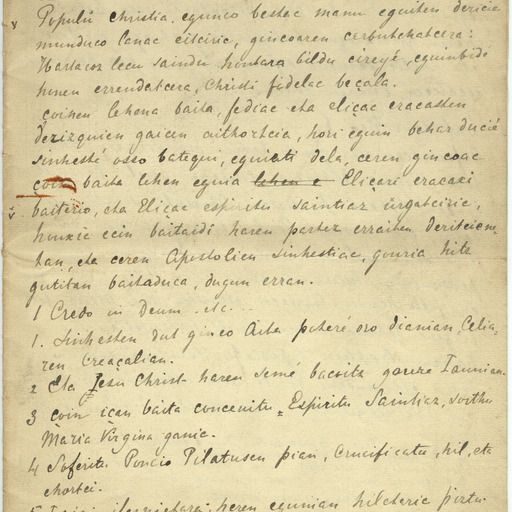 y Populú christia, egunco bestac manu eguiten dericie
munduco lanac citciric, gincoaren cerbutchatcera:
Hartacoz lecu saindu hontara bildu cireyé, eguinbidé
hunen errendatcera, Christi fidelac beçala.
çoinen lehena baita, fediac eta eliçac eracasten
derizquien gaicen aithortcia, hori eguin behar ducié
sinhesté osso bateqin, eguiati dela, ceren gincoac
çoin baita lehen eguia lehen e Eliçari eracaxi
baiterio, eta Eliçac espiritu saintiaz urgatciric,
hunxic ecin baitaidi haren partez erraiten dericien-
tan, eta ceren Apostolien sinhestiac, gouria hitz
gutitan baitaduca, dugun erran.
1 Credo in Deum .etc...
1. Sinhesten dut ginco Aita potheré oro dianian, Celia-
ren Creaçalian.
2 Eta Jesu Christ haren semé bacoitz goure Iaunian.
3 çoin ican baita concevitu Espiritu Saintiaz, sorthu
Maria Virgina ganic.
4 Soferitu Poncio Pilatusen pian, Crucificatu, hil, eta
ehortci.
5 haren egunian hilcteric piztu.